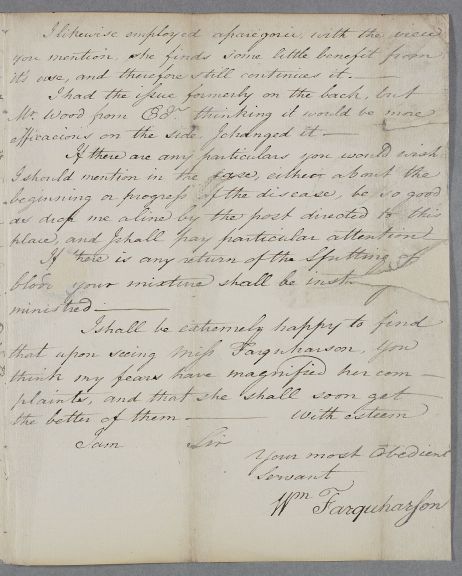 I likewise employed aparegoric, with the view
you mention, she finds some little benefit from
it's use, and therefore still continues it. —
I had the issue formerly on the back, but
Mr. Wood from Edr. thinking it would be more
efficacious on the side, I changed it —
If there are any particulars you would wish
I should mention in the case, either about the
beginning or progress of the disease, be so good
as drop me a line by the post directed to this
place, and I shall pay particular attention
If there is any return of the Spitting of
blood your mixture shall be inst.
ministred. —
I shall be extremely happy to find
that upon seeing Miss Farquharson, you
think my fears have magnified her com—
plaints, and that she shall soon get
the better of them — With esteem
I am Sir
Your most Obedient
Servant
Wm Farquharson